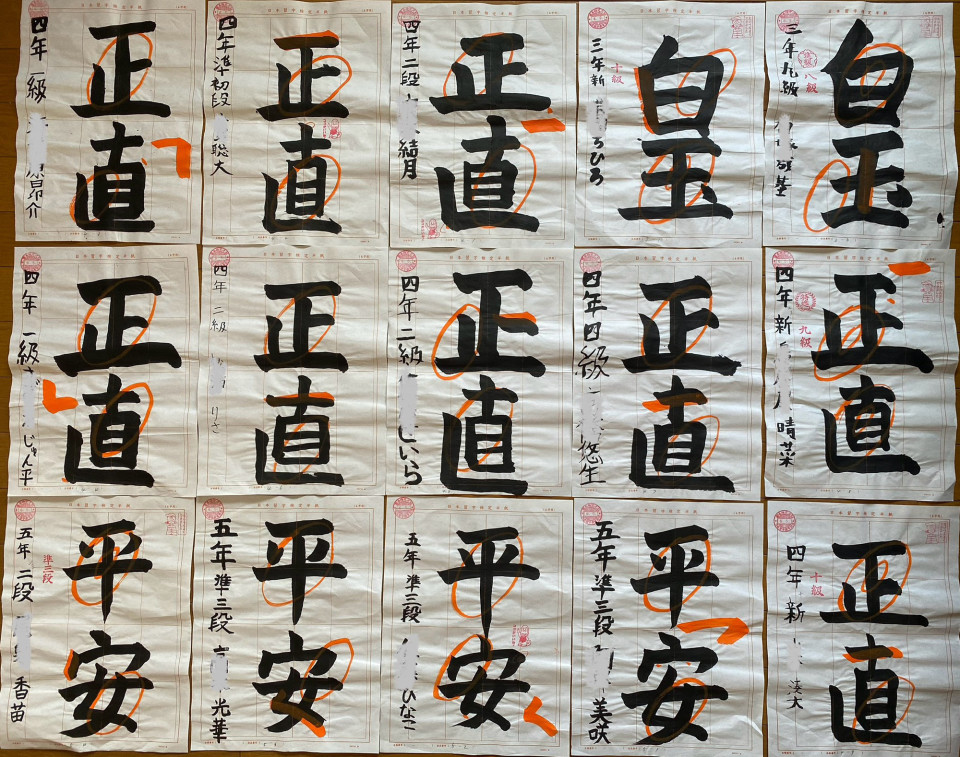 正直
四年 一級 昂介
正直
四年 準初段 聡大
正直
四年 二段 結月
白玉
十級
三年 新 ちひろ
白玉
八級
三年 九級
正直
四年 一級 じゅん平
正直
四年 二級 りさ
正直
四年 二級
正直
四年 四級 悠生
正直
九級
四年 新 晴菜
平安
準三段
五年 二段 香苗
平安
五年 準三段 光華
平安
五年 準三段 ひなこ
平安
五年 準三段 美咲
正直
十級
四年 新 湊大